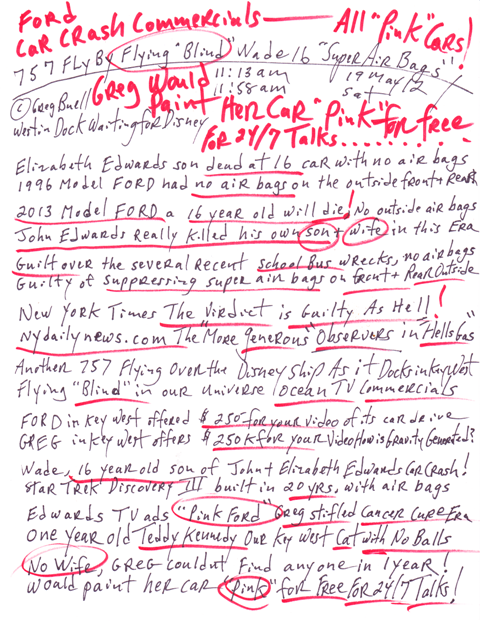 FORD
CAR CRASH COMMERCIALS — All "Pink" Cars!
757 Fly By Flying "Blind" Wade 16 "Super Air Bags"!
11:13 am 19 May 12
11:58 am Sat
© Greg Buell GREG Would Paint Her Car "Pink" for free
Westin Dock Waiting for Disney FOR 24/7 Talks.........
Elizabeth Edwards son dead at 16 car with no air bags
1996 Model FORD had no air bags on the outside front + Rear
2013 Model FORD a 16 year old will die! No outside air bags
John Edwards Really Killed his own son + wife in this Era
Guilt over the several recent school Bus wrecks, no air bags
Guilty of suppressing super air bags on front + Rear Outside
New York Times The Virdict is Guilty As Hell!
Nydailynews.com The "More generous" Observers in "Hells Gas"
Another 757 Flying Over the Disney Ship As it Docks in Key West
Flying "Blind" in our universe Ocean TV Commercials
FORD in Key West offered $250 for your video of its car drive
GREG in Key West offers $250K for your Video How is Gravity Generated?
Wade, 16 year old son of John + Elizabeth Edwards Car Crash!
Star Trek Discovery III built in 20 yrs, with air bags
Edwards TV ads "Pink Ford" Greg stifled Cancer Cure Era
One year old Teddy Kennedy Our Key West Cat with No Balls
No Wife, GREG couldnt find anyone in 1 year!
Would paint her car "pink" for Free FOR 24/7 Talks!